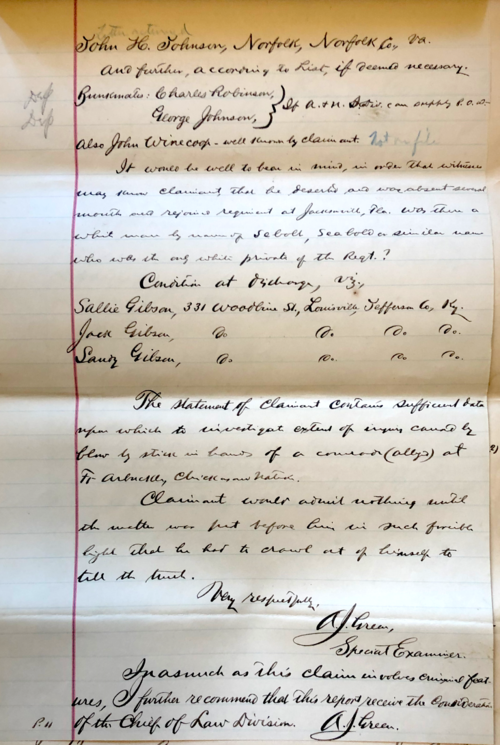 Letter returned
John H. Johnson, Norfolk, Norfolk Co., Va.
And further, according to List, if deemed necessary.
Dep
Dep
Bunkmates: Charles Robinson,
George Johnson,
If A. & N. S. Div. can supply P.O. ad
Also John Winecoop - well known by claimant. Not on file
It would be well to bear in mind, in order that witnesses
may know claimant that he deserted and was absent several
months and rejoined regiment at Jacksonville, Fla. Was there a
white man by name of Sebolt, Seabold or similar name
who was the only white private of the Regt.?
Condition at discharge, viz.,
Sallie Gibson, 331 Woodline St., Louisville, Jefferson Co., Ky.
Jack Gibson, Do Do. Do Do.
Sandy Gibson, Do Do. Do Do.
The statement of claimant contains sufficient data
upon which to investigate extent of injury caused by
blow by stick in hands of a comrade (alleg'd) at
Ft Arbuckle, Chickasaw Nation.
Claimant would admit nothing until
the matter was put before him in such forcible
light that he had to crawl out of himself to
tell the truth.
Very respectfully,
A.J. Green,
Special Examiner.
Inasmuch as this claim involves criminal feat-
ures, I further recommend that this report receive the consideration
of the Chief of Law Division. A.J. Green.
P. 11